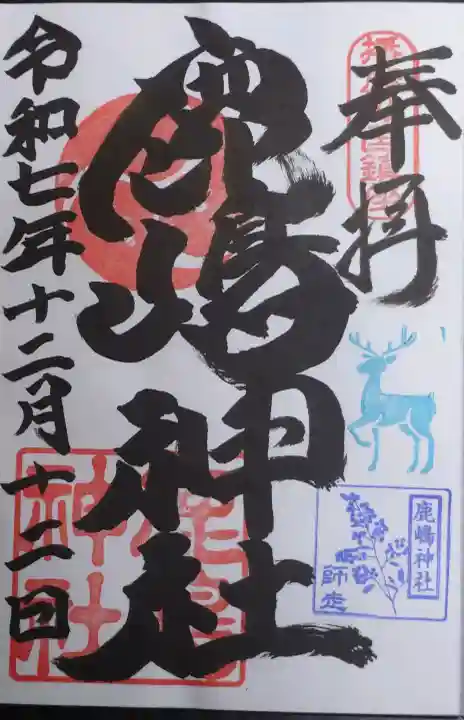 奉拝
鹿嶋神社
令和七年十二月十二日
鹿嶋神社
師走
鹿嶋神社